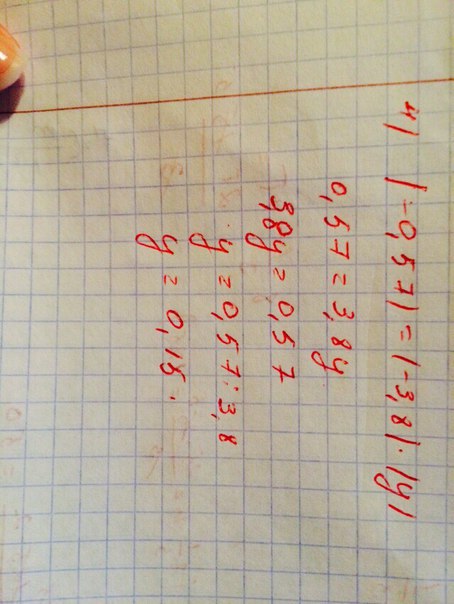 4) |-0,57|=|-3,8|·|y|
0,57=3,8y
3,8y=0,57
y=0,57:3,8
y=0,15.